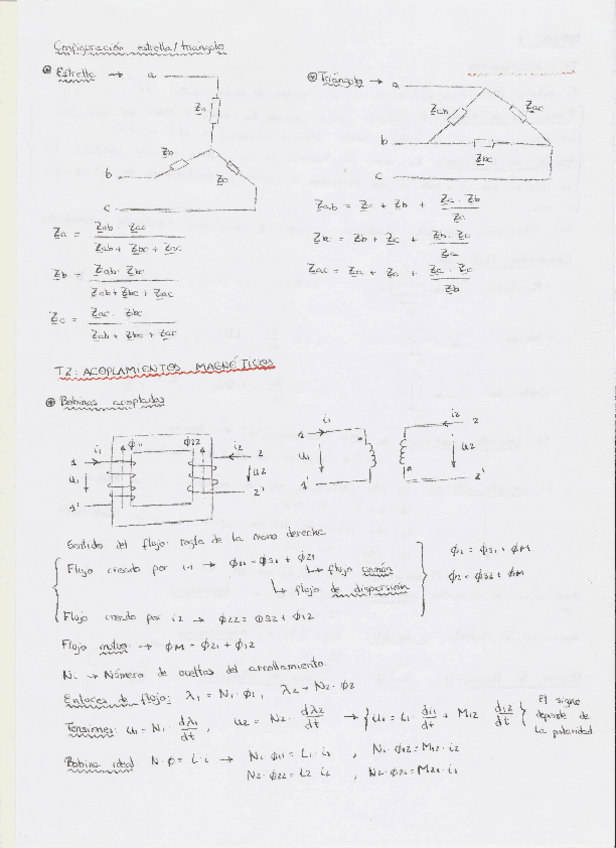 Configuración estrella/triángulo
⊛ Estrella → a
Za
Zb
Zc
b
c
Za = Zab · Zac / Zab + Zbc + Zac
Zb = Zab · Zbc / Zab + Zbc + Zac
Zc = Zac · Zbc / Zab + Zbc + Zac
⊛ Triángulo → a
Zab
Zac
b
Zbc
c
Zab = Za + Zb + Za · Zb / Zc
Zbc = Zb + Zc + Zb · Zc / Za
Zac = Za + Zc + Za · Zc / Zb
T2: ACOPLAMIENTOS MAGNÉTICOS
⊛ Bobinas acopladas
i1 ϕ11 ϕ22 i2
1 2
u1 u2
1' 2'
i1 i2
1 2
u1 u2
1' 2'
Sentido del flujo: regla de la mano derecha
Flujo creado por i1 → ϕ11 = ϕS1 + ϕ21
↳ flujo común
↳ flujo de dispersión
Flujo creado por i2 → ϕ22 = ϕS2 + ϕ12
ϕ1 = ϕS1 + ϕM
ϕ2 = ϕS2 + ϕM
Flujo mutuo → ϕM = ϕ21 + ϕ12
Ni → Número de vueltas del arrollamiento
Enlaces de flujo: λ1 = N1 · ϕ1, λ2 = N2 · ϕ2
Tensiones: u1 = N1 · dλ1/dt, u2 = N2 · dλ2/dt → { u1 = L1 · di1/dt + M12 di2/dt }
El signo
depende de
la polaridad
Bobina ideal N·ϕ = L·i → N1·ϕ11 = L1·i1, N1·ϕ12 = M12·i2
N2·ϕ22 = L2·i2, N2·ϕ21 = M21·i1